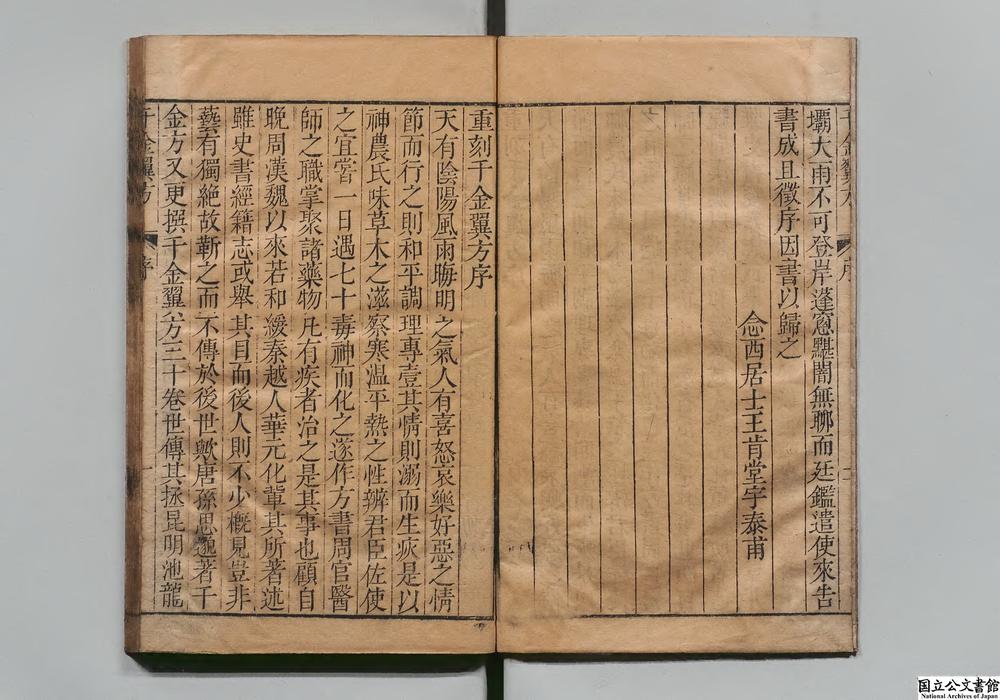 壩大雨不可登岸蓬窓黮闇無聊而廷鑑遣使來告
書成且徵序因書以歸之
念西居士王肯堂宇泰甫
重刻千金翼方序
天有陰陽風雨晦明之氣人有喜怒哀樂好惡之情
節而行之則和平調理專壹其情則溺而生疢是以
神農氏味草木之滋察寒温平熱之性辨君臣佐使
之宜嘗一日遇七十毒神而化之遂作方書周官醫
師之職掌聚諸藥物凡有疾者治之是其事也顧自
晚周漢魏以來若和緩秦越人華元化軰其所著述
雖史書經籍志或舉其目而後人則不少概見豈非
藝有獨絶故靳之而不傳於後世歟唐孫思邈著千
金方又更撰千金翼方三十卷世傳其拯昆明池龍
千金翼方
序
一
国立公文書館
National Archives of Japan